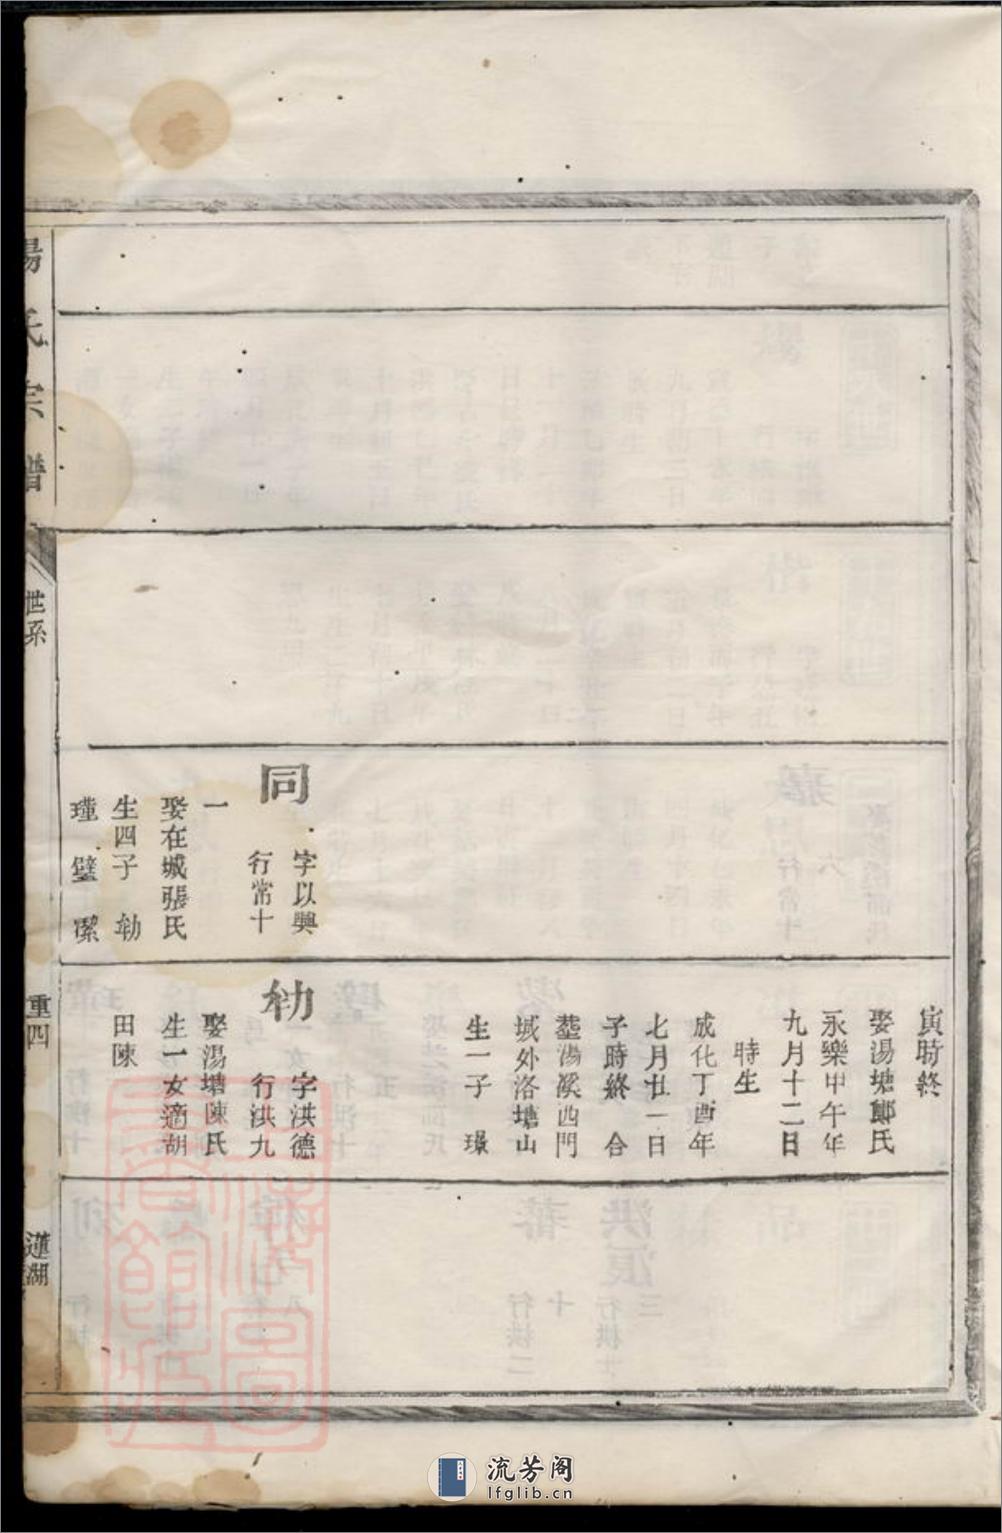 同
字以興
行常十
一
娶在城張氏
生四子 勎
瑾 璧 瓗
寅時終
娶湯塘鄭氏
永樂甲午年
九月十二日
時生
成化丁酉年
七月廿一日
子時終 合
塟湯溪西門
城外洛塘山
生一子 璟
字洪德
行洪九
娶湯塘陳氏
生一女適胡
田陳
氏宗譜
世系
重四
蓮湖
流芳阁
lfglib.cn